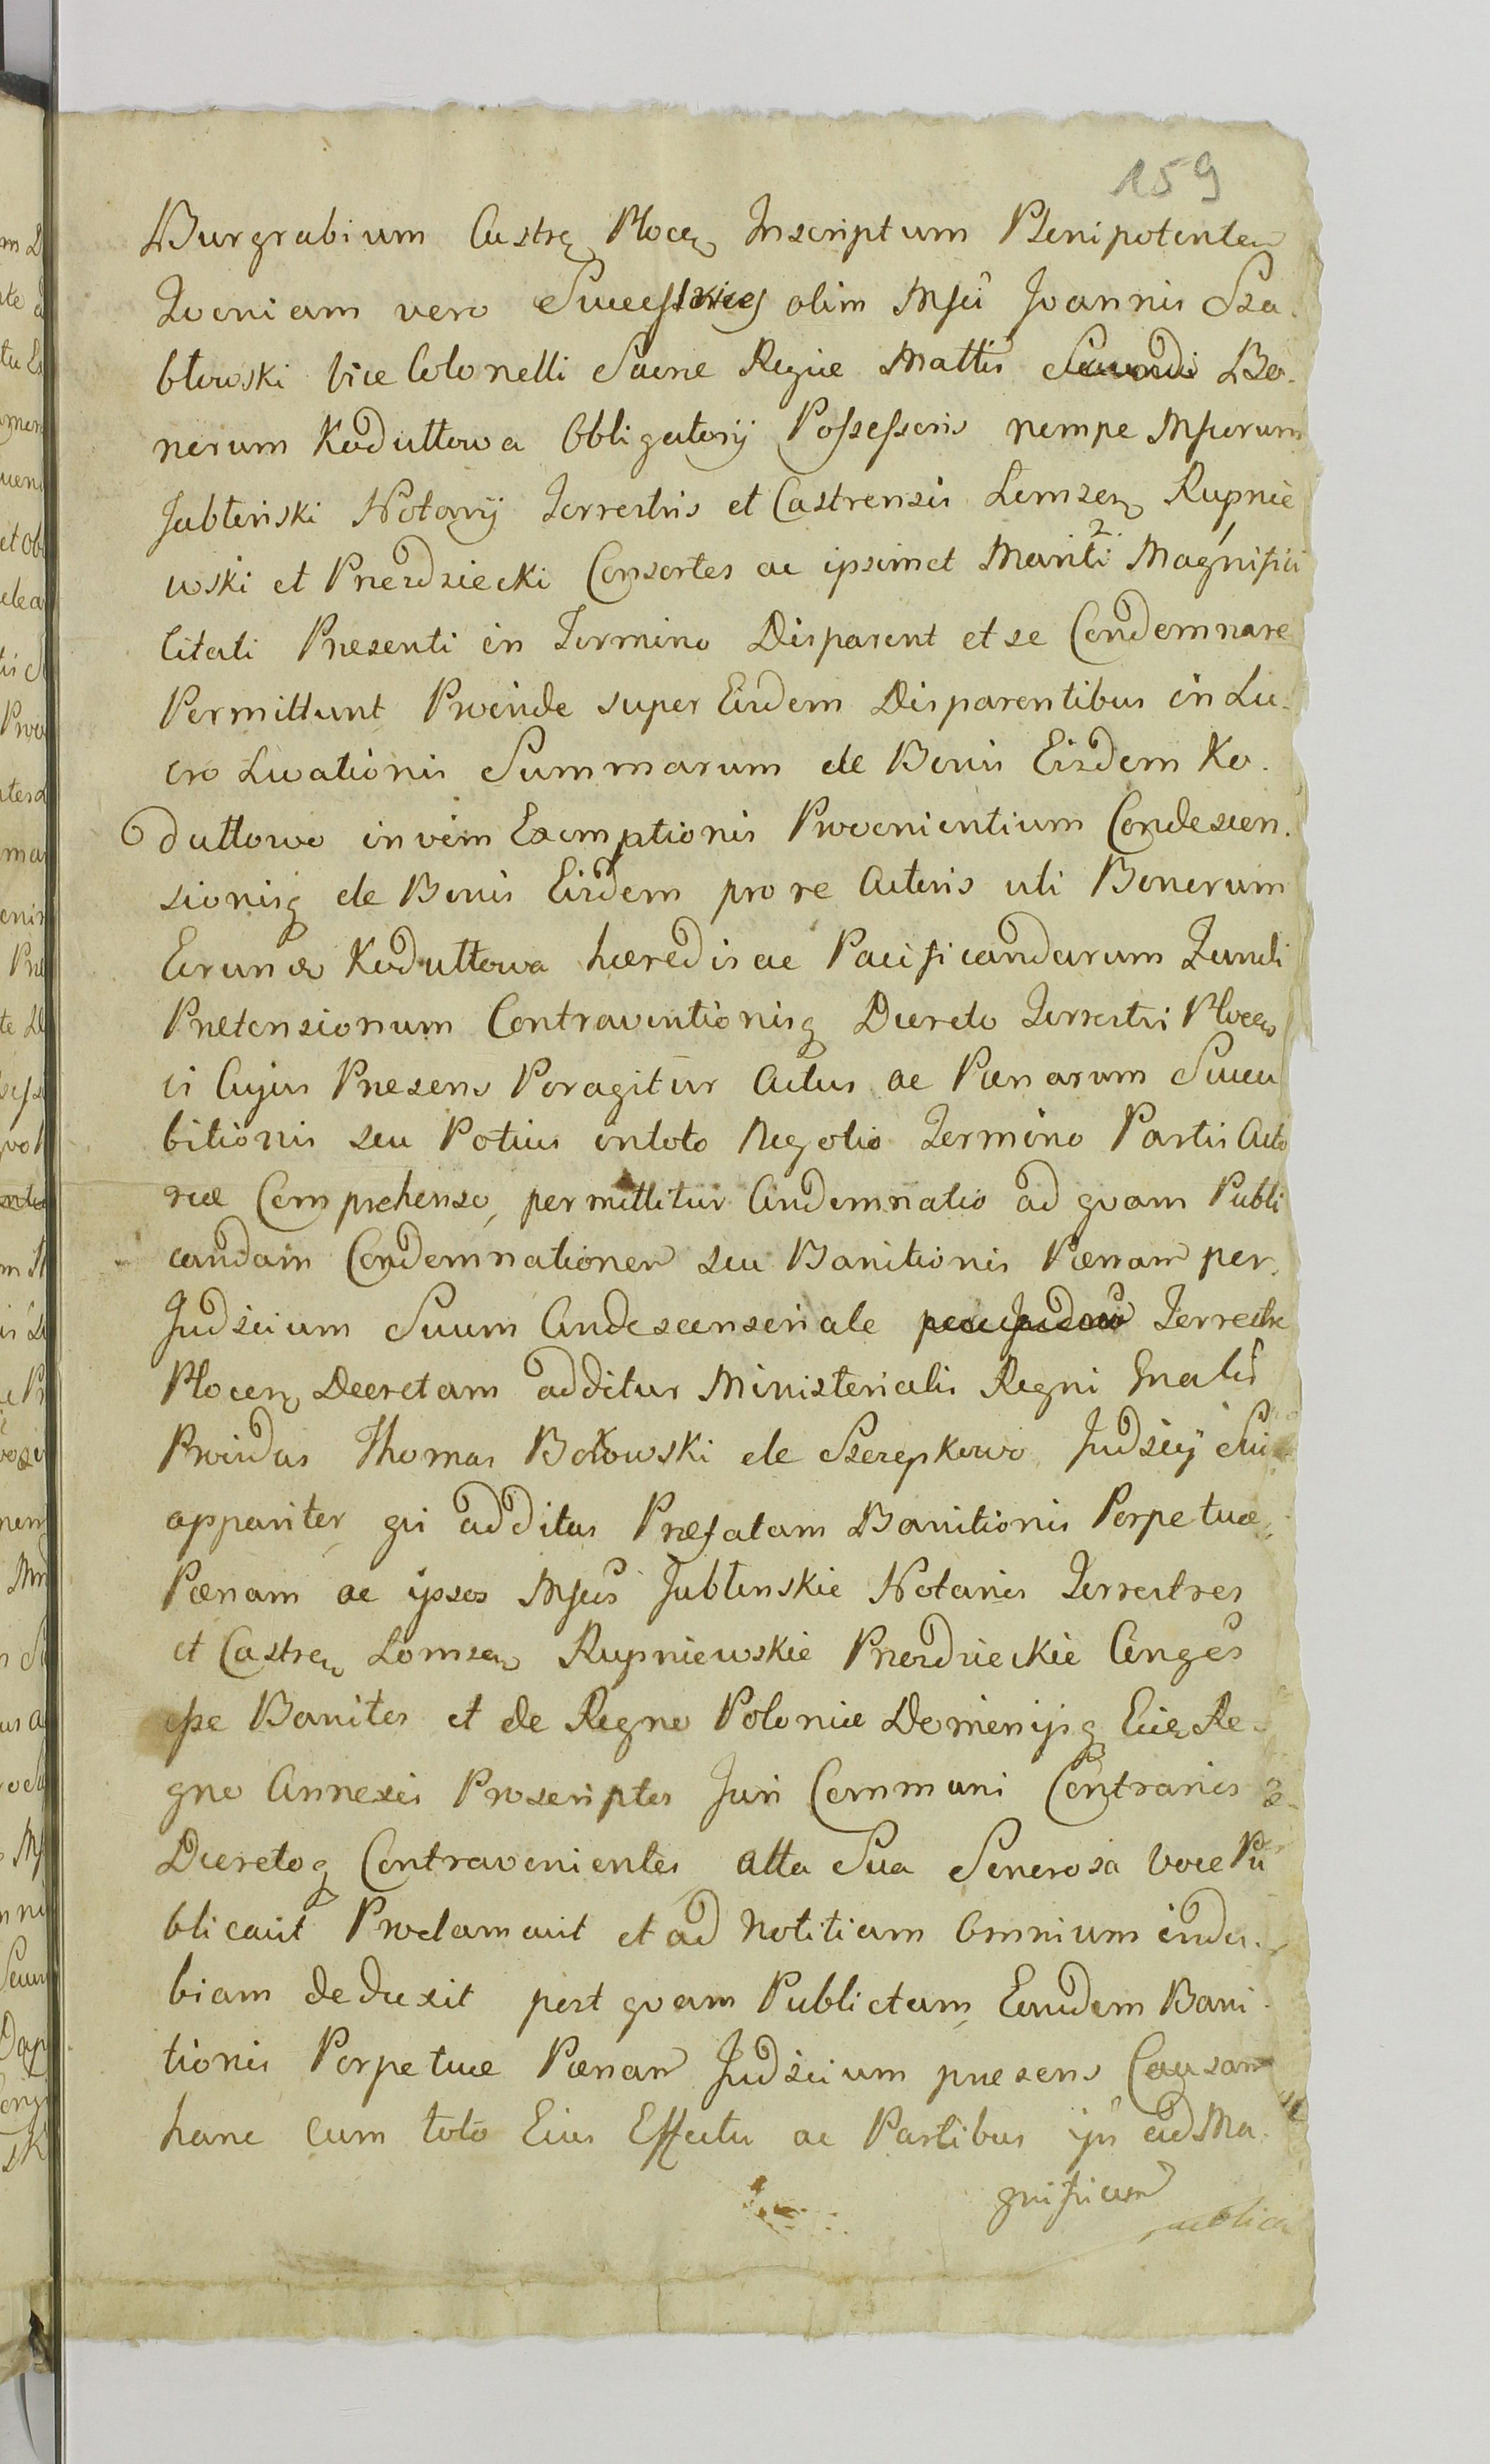 159
Burgrabium Castre Plocen Inscriptum Plenipotentem
Qvoniam vero Successores olim Msci Joannis Sza-
błowski Vice Colonelli Sacræ Regiæ Mattis Bo-
norum Koduttowa Obligatorij Possessoris nempe Mscorum
Jabłoński Notarij Terrestris et Castrensis Lomzen Rupnie
wski et Przerdziecki Consortes ac ipsimet Mariti 2 Magnifici 1
Citati Præsenti in Termino Disparent et se Condemnare
Permittunt Proinde super Eisdem Disparentibus in Lu-
cro Lucationis Summarum de Bonis Eisdem Ko-
duttowo in vim Exemptionis Provenientium Condescen-
sionisq de Bonis Eisdem pro re Actoris uti Bonorum
Eorundem Koduttowa hæredis ac Pacificandarum Qandi
Prætensionum Contraventionisq Decreto Terrestri Plocen
ci Cujus Præsens Peragitur Actus ac Pænarum Succu
bitionis seu Potius in toto Negotio Termino Partis Acto
reæ Comprehenso, permittitur Condemnatio ad qvam Publi
candam Condemnationem seu Banitionis Pænam per
Judicium Suum Condescensoriale Terrestre
Plocen Decretam additur Ministerialis Regni Gnalis
Providus Thomas Borowski de Szczepkowo Judicij Sui
apparitor, qui additus Præfatam Banitionis Perpetuæ
Pænam ac ipsos Mscos Jabłonskie Notarios Terrestres
et Castren Lomzen Rupniewskie Przerdzieckie Conges
esse Banitos et de Regno Poloniæ Dominijsq Eidem Re-
gno Annexis Proscriptos Juri Communi Contrarios
Decretoq Contravenientes alta Sua Senorosa Voce Pu
blicavit Proclamavit et ad Notitiam Omnium indu-
biam deduxit post qvam Publictam Eandem Bani-
tionis Perpetuæ Pænam Judicium præsens Causam
hanc cum toto Eius Effectu ac Partibus ijs ad Ma-
gnificum
publica